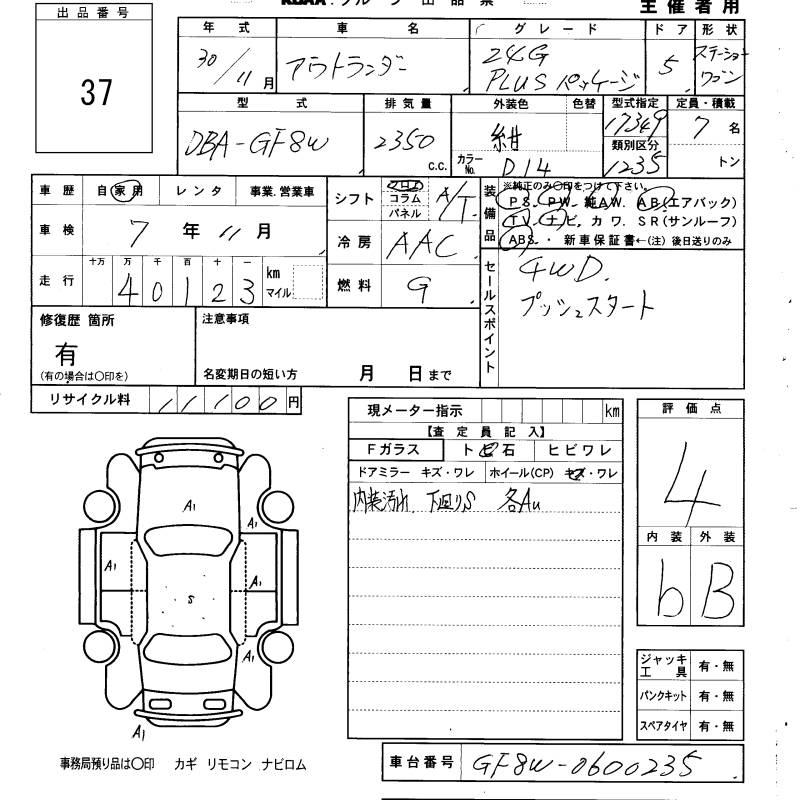 出品番号
37
主催者用
年式 車名 グレード ドア 形状
30/11月 アウトランダー 24G PLUS パッケージ 5 ステーションワゴン
型式 排気量 外装色 色替 型式指定 定員・積載
DBA-GF8W 2350 c.c. 紺 17349 7名
カラーNo. D14 類別区分 1235 トン
車歴 自家用 レンタ 事業.営業車
シフト フロア コラム パネル A/T
装備品 ※純正のみ〇印をつけて下さい。
PS. PW. 純AW. AB(エアバック)
TV. ナビ. カワ. SR(サンルーフ)
ABS. ・ 新車保証書←(注) 後日送りのみ
車検 7年11月
冷房 AAC
走行 十万 万 千 百 十 一
40123 km マイル
燃料 G
セールスポイント
4WD.
プッシュスタート
修復歴 箇所
有
(有の場合は〇印を)
注意事項
名変期日の短い方 月 日まで
リサイクル料 11100円
現メーター指示 km
【査定員記入】
Fガラス トビ石 ヒビワレ
ドアミラー キズ・ワレ ホイール(CP) キズ・ワレ
内装汚れ 下回りS 各Au
評価点
4
内装 外装
b B
A1
A1
A1
A1
S
A1
A1
A1
ジャッキ工具 有・無
パンクキット 有・無
スペアタイヤ 有・無
事務局預り品は〇印 カギ リモコン ナビロム
車台番号 GF8W-0600235